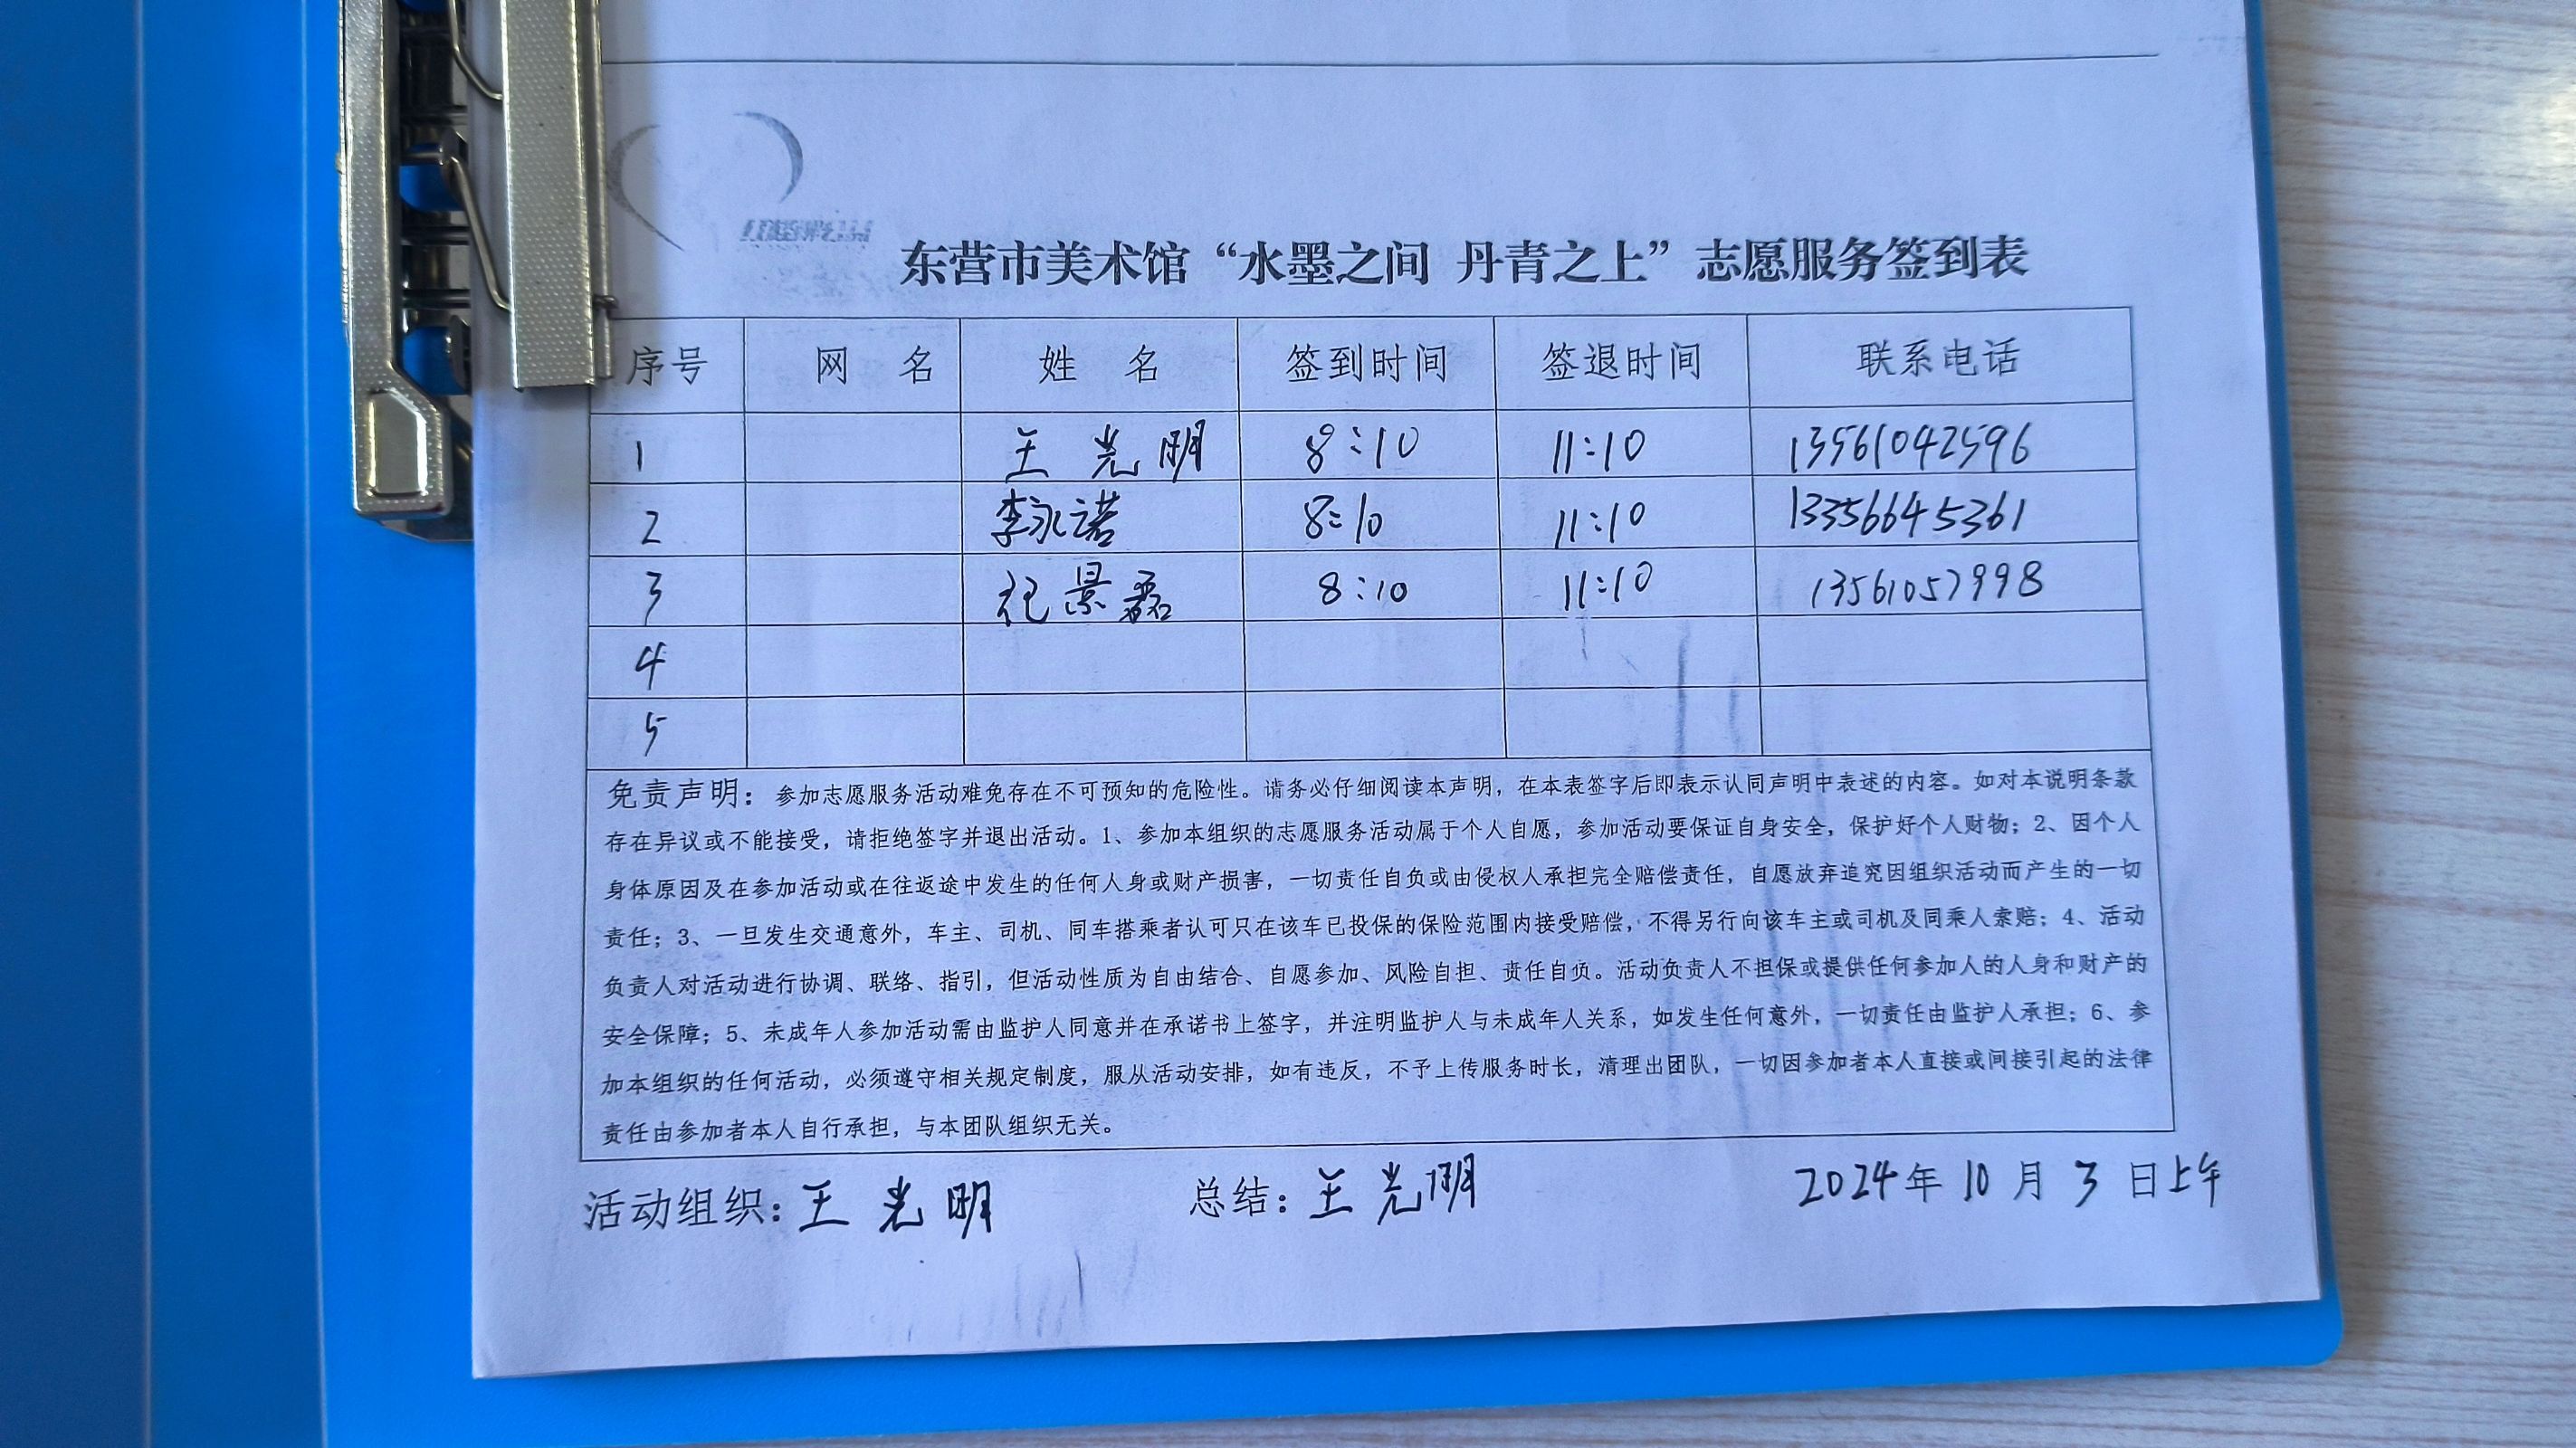 东营市美术馆“水墨之间 丹青之上”志愿服务签到表
序号 网 名 姓 名 签到时间 签退时间 联系电话
1 王光明 8:10 11:10 13561042596
2 李永诺 8:10 11:10 13356645361
3 景磊 8:10 11:10 13561057998
4
5
免责声明：参加志愿服务活动难免存在不可预知的危险性。请务必仔细阅读本声明，在本表签字后即表示认同声明中表述的内容。如对本说明条款
存在异议或不能接受，请拒绝签字并退出活动。1、参加本组织的志愿服务活动属于个人自愿，参加活动要保证自身安全，保护好个人财物；2、因个人
身体原因及在参加活动或在往返途中发生的任何人身或财产损害，一切责任自负或由侵权人承担完全赔偿责任，自愿放弃追究因组织活动而产生的一切
责任；3、一旦发生交通意外，车主、司机、同车搭乘者认可只在该车已投保的保险范围内接受赔偿，不得另行向该车主或司机及同乘人索赔；4、活动
负责人对活动进行协调、联络、指引，但活动性质为自由结合、自愿参加、风险自担、责任自负。活动负责人不担保或提供任何参加人的人身和财产的
安全保障；5、未成年人参加活动需由监护人同意并在承诺书上签字，并注明监护人与未成年人关系，如发生任何意外，一切责任由监护人承担；6、参
加本组织的任何活动，必须遵守相关规定制度，服从活动安排，如有违反，不予上传服务时长，清理出团队，一切因参加者本人直接或间接引起的法律
责任由参加者本人自行承担，与本团队组织无关。
活动组织：王光明 总结：王光明 2024年10月3日上午